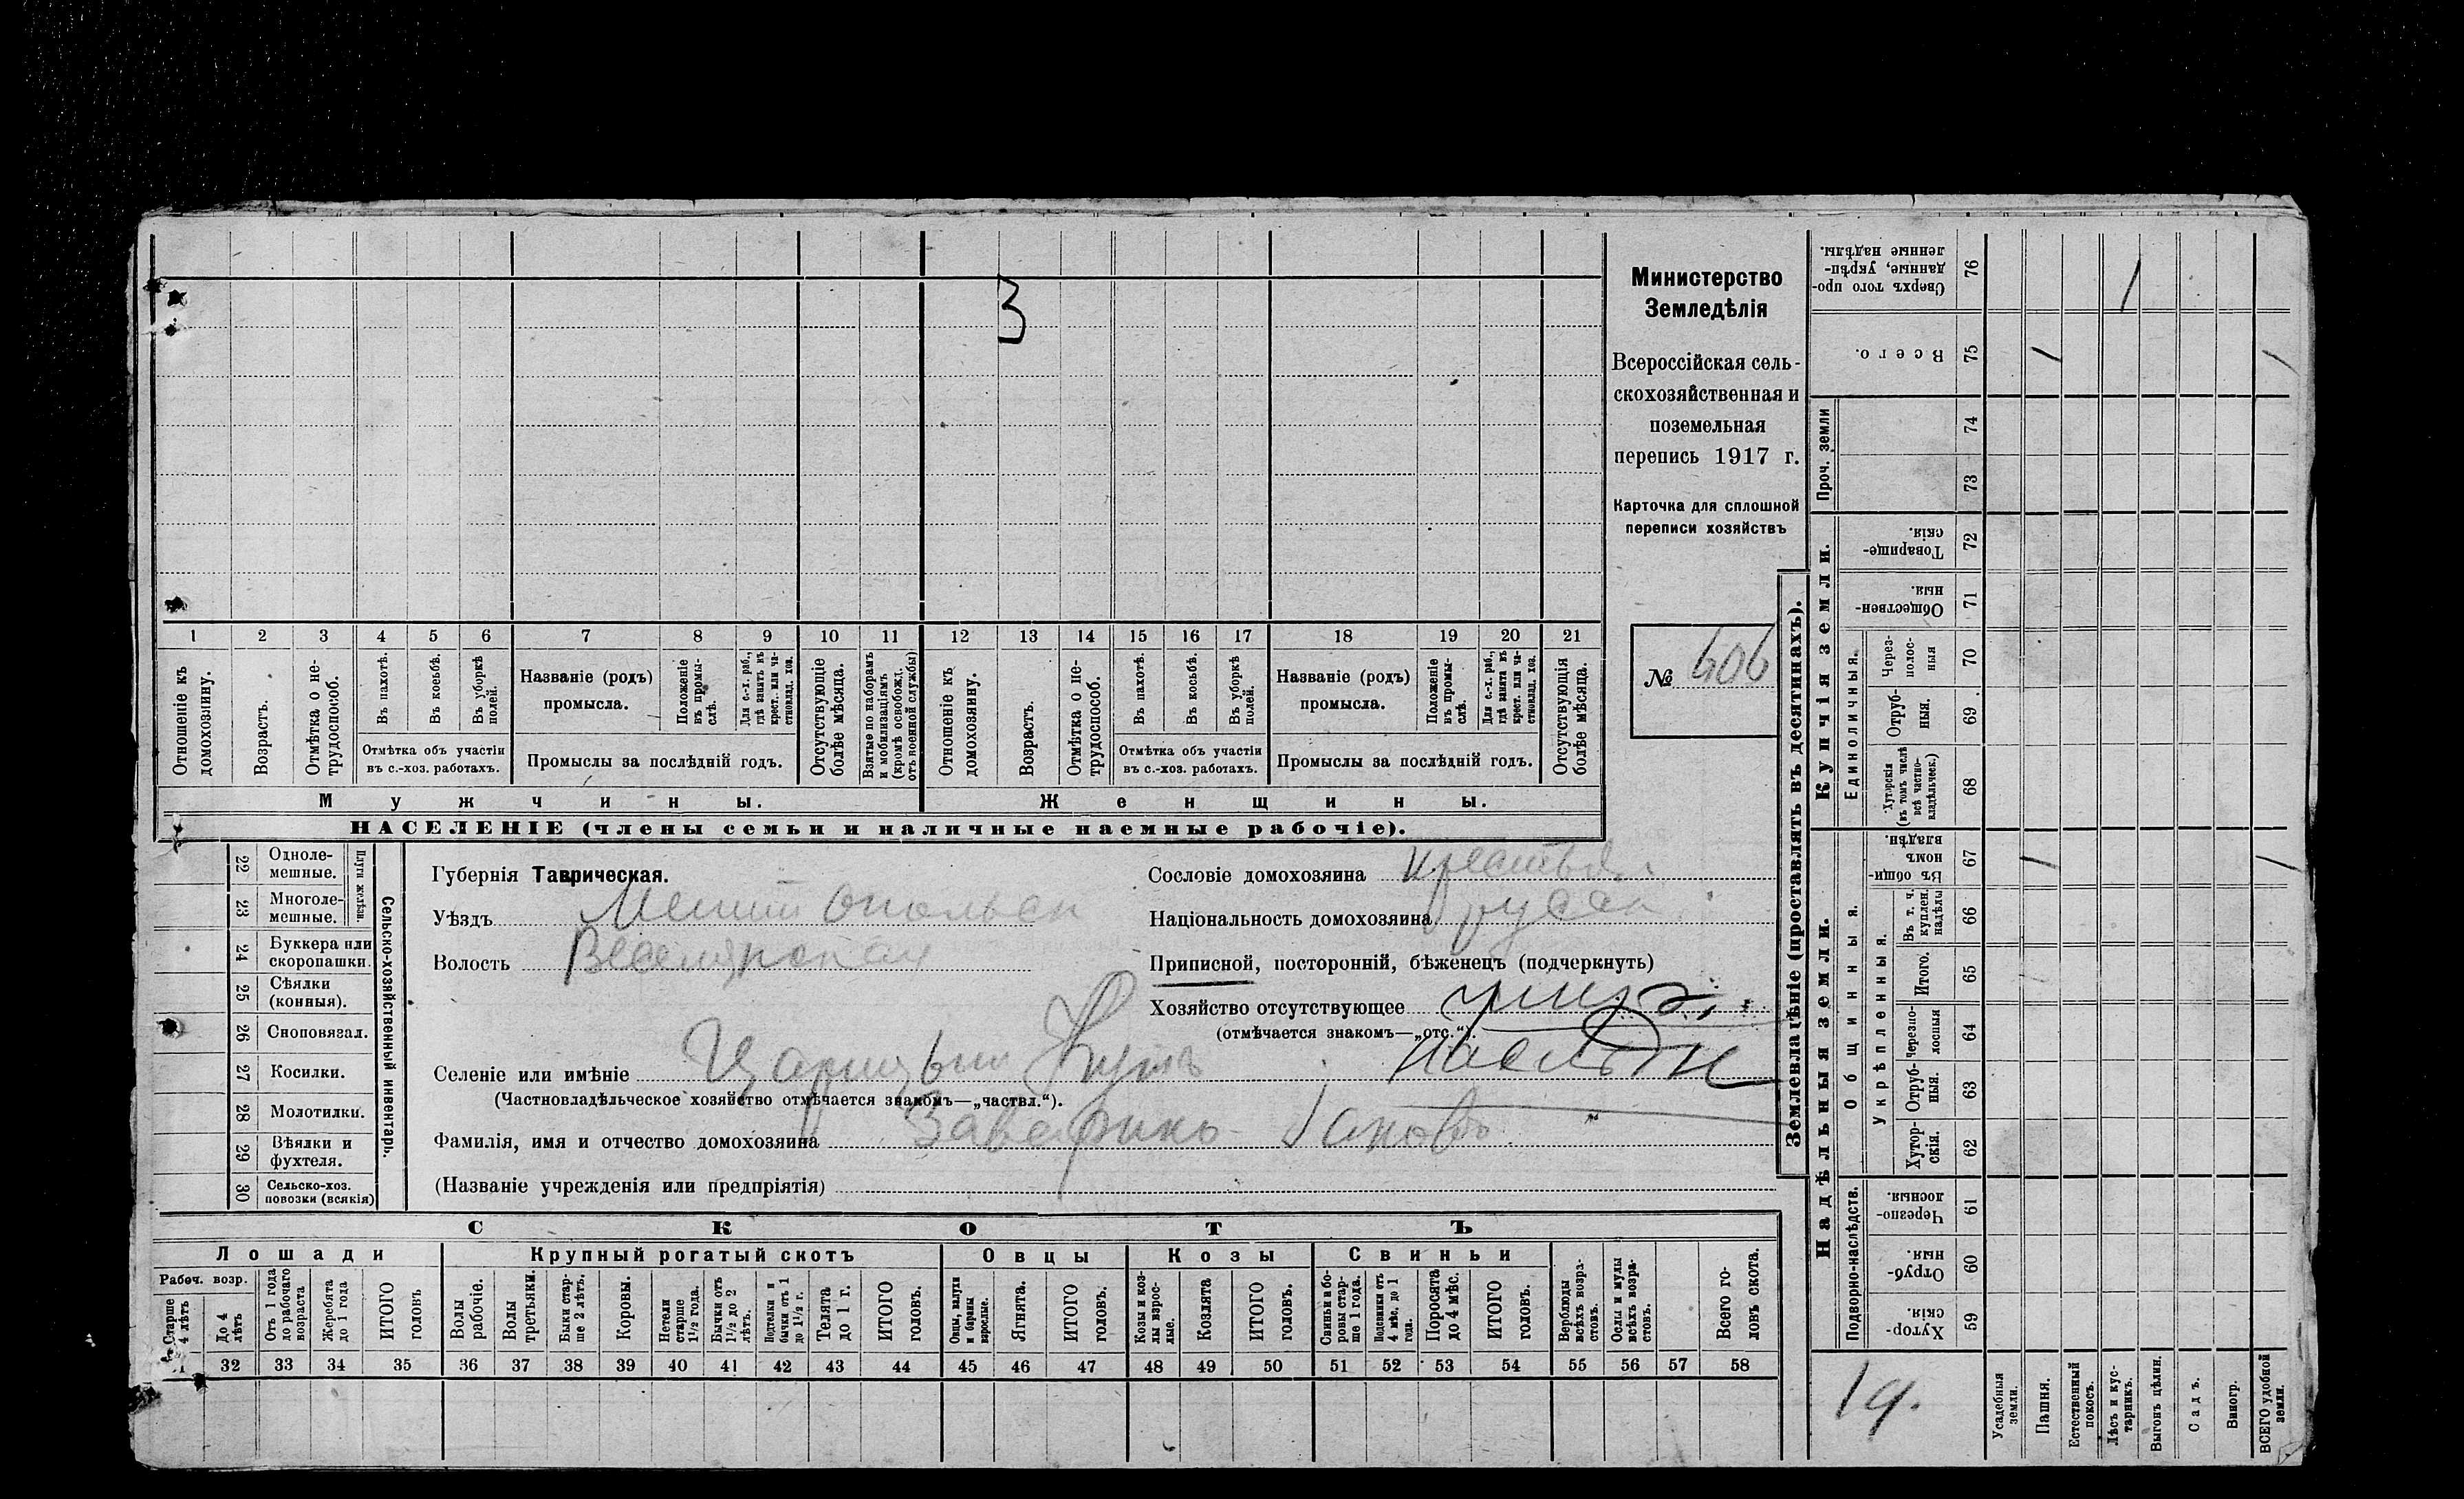 3
1 2 3 4 5 6 7 8 9 10 11 12 13 14 15 16 17 18 19 20 21
Отношеніе къ домохозяину.
Возрастъ.
Отмѣтка о не-
трудоспособ.
Въ пахотѣ.
Въ косьбѣ.
Въ уборкѣ полей.
Отмѣтка объ участіи
въ с.-хоз. работахъ.
Названіе (родъ)
промысла.
Положеніе въ промы-
слѣ.
Для с.-х. раб., гдѣ занятъ въ крест. или ча-
стновлад. хоз.
Промыслы за послѣдній годъ.
Отсутствующіе болѣе мѣсяца.
Взятые по наборамъ и мобилизаціямъ (кромѣ освобожд. отъ военной службы)
Отношеніе къ домохозяину.
Возрастъ.
Отмѣтка о не-
трудоспособ.
Въ пахотѣ.
Въ косьбѣ.
Въ уборкѣ полей.
Отмѣтка объ участіи
въ с.-хоз. работахъ.
Названіе (родъ)
промысла.
Положеніе въ промы-
слѣ.
Для с.-х. раб., гдѣ занята въ крест. или ча-
стновлад. хоз.
Промыслы за послѣдній годъ.
Отсутствующія болѣе мѣсяца.
Мужчины.
Женщины.
НАСЕЛЕНІЕ (члены семьи и наличные наемные рабочіе).
Министерство
Земледѣлія
Всероссійская сель-
скохозяйственная и
поземельная
перепись 1917 г.
Карточка для сплошной
переписи хозяйствъ
№ 606
22 Одноле-
мешные.
23 Многоле-
мешные.
Плуги желѣзн.
24 Буккера или
скоропашки.
25 Сѣялки
(конныя).
26 Сноповязал.
27 Косилки.
28 Молотилки.
29 Вѣялки и
фухтеля.
30 Сельско-хоз.
повозки (всякія)
Сельско-хозяйственный инвентарь.
Губернія Таврическая.
Уѣздъ Мелитопольск
Волость Веселярская
Селеніе или имѣніе Царицын Кутъ
(Частновладѣльческое хозяйство отмѣчается знакомъ—„частвл.“).
Фамилія, имя и отчество домохозяина Заверико Яковъ
(Названіе учрежденія или предпріятія)
Сословіе домохозяина крестьян
Національность домохозяина русск
Приписной, посторонній, бѣженецъ (подчеркнуть)
Хозяйство отсутствующее
(отмѣчается знакомъ—„отс.“).
СКОТЪ
Лошади
Крупный рогатый скотъ
Овцы
Козы
Свиньи
Рабоч. возр.
Старше 4 лѣтъ
До 4 лѣтъ
Отъ 1 года до рабочаго возраста
Жеребята до 1 года
ИТОГО головъ
Волы рабочіе.
Волы третьяки.
Быки стар-
ше 2 лѣтъ.
Коровы.
Нетели старше 1½ года.
Бычки отъ 1½ до 2 лѣтъ.
Подтелки и бычки отъ 1 до 1½ г.
Телята до 1 г.
ИТОГО головъ.
Овцы, валухи и бараны взрослые.
Ягнята.
ИТОГО головъ.
Козы и коз-
лы взрос-
лые.
Козлята
ИТОГО головъ.
Свиньи и бо-
ровы стар-
ше 1 года.
Подсвинки отъ 4 мѣс. до 1 года.
Поросята до 4 мѣс.
ИТОГО головъ.
Верблюды всѣхъ возра-
стовъ.
Ослы и мулы всѣхъ возра-
стовъ.
Всего го-
ловъ скота.
32 33 34 35 36 37 38 39 40 41 42 43 44 45 46 47 48 49 50 51 52 53 54 55 56 57 58
Землевладѣніе (проставлять въ десятинахъ).
Сверхъ того про-
данные, укрѣп-
ленные надѣлы. 76
Всего. 75
Проч. земли
74
73
Купчія земли.
Товарище-
скія. 72
Обществен-
ныя. 71
Единоличныя.
Через-
полос-
ныя 70
Отруб-
ныя. 69
Хуторскія (въ томъ числѣ всѣ частно-
владѣльческ.) 68
Надѣльныя земли.
Въ общи-
номъ
владѣн. 67
Общинныя.
Укрѣпленныя.
Въ т. ч. куплен. надѣлы 66
Итого. 65
Черезпо-
лосныя 64
Отруб-
ныя. 63
Хутор-
скія. 62
Подворно-наслѣдств.
Черезпо-
лосныя. 61
Отруб-
ныя. 60
Хутор-
скія. 59
19.
Усадебныя земли.
Пашня.
Естественный покосъ.
Лѣсъ и кус-
тарникъ.
Выгонъ цѣлин.
Садъ.
Виногр.
ВСЕГО удобной земли.